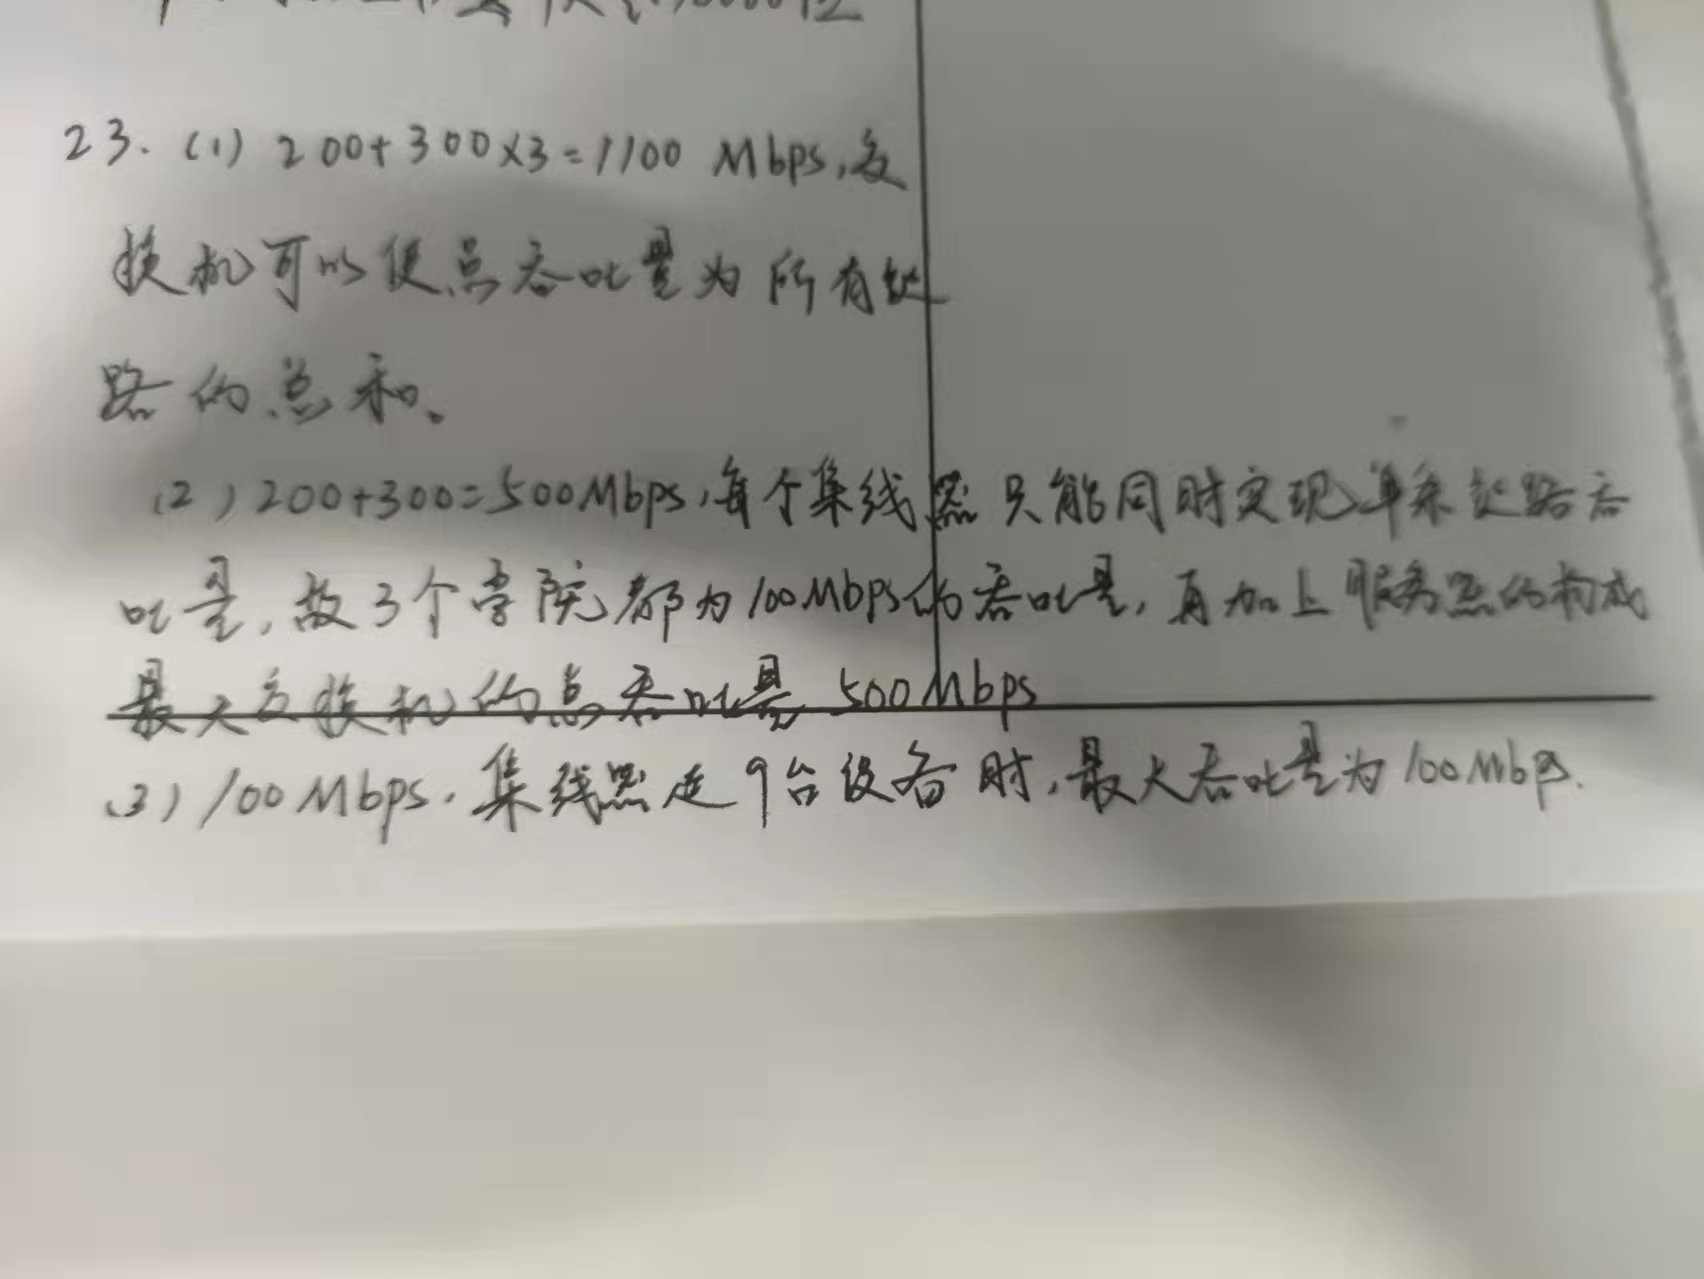 23. (1) 200+300×3=1100 Mbps,交
换机可以使总吞吐量为所有链
路的总和。
(2) 200+300=500Mbps,每个集线器只能同时实现单条链路吞
吐量,故3个学院都为100Mbps的吞吐量,再加上服务器的构成
最大交换机的总吞吐量500Mbps
(3) 100Mbps.集线器连9台设备时,最大吞吐量为100Mbps.